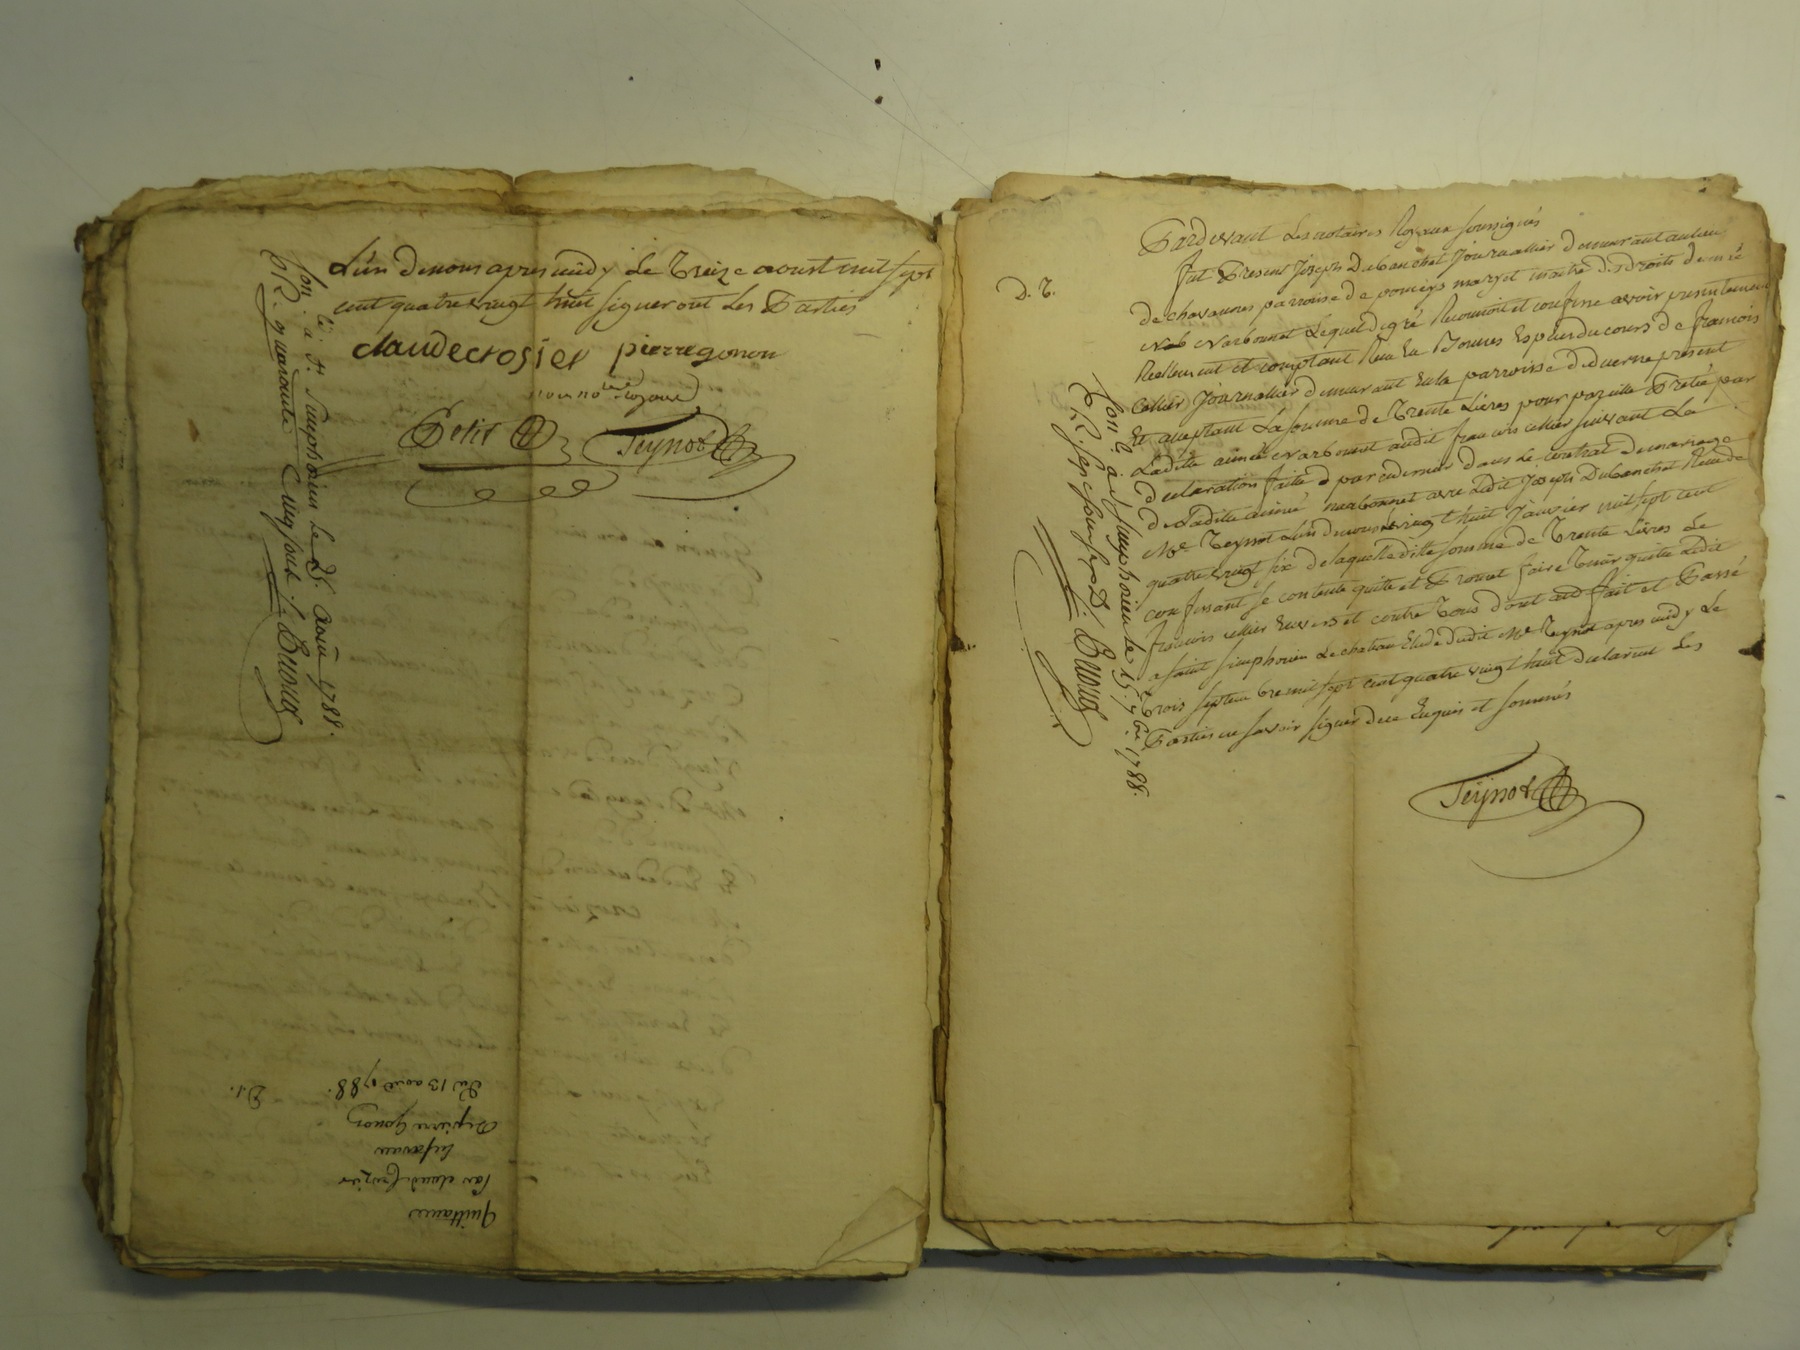 L'un de nous apres midy Le Treize aoust mil sept
cent quatre vingt huit signeront Les Parties
claude crosier pierre gonon
Petit Teynot
Con.lé a St. Simphorien Le 25. Aout 1788.
R. quarante cinq sous
quittance
Par claude Crozier
De pierre Gonon
Du 13 aout 1788.
D. t.
D. T.
Pardevant Les notaires Royaux soussignés
fut Present Joseph Dubanchet Journallier demeurant au lieu
de chavannes parroisse de pomeys mary et maitre des droits d'aimé
Narbonnet Lequel de gré Reconnoit et confesse avoir presentement
Reellement et comptant Reçu En Bonnes Especes du cours de francois
Cellier Journallier demeurant En la parroisse de duerne present
Et acceptant La somme de Trente Livres pour pareille Pretée par
Ladite aimée Narbonnet audit francois cellier suivant La
declaration faite par ce dernier dans Le contrat de mariage
de Ladite aimée narbonnet avec Ledit Joseph Dubanchet Reçu de
Me. Teynot L'un de nous Le vingt huit Janvier mil sept cent
quatre vingt six de laquelle ditte somme de Trente Livres Le
confessant se contente quitte et Promet faire Tenir quitte Ledit
francois cellier Envers et contre Tous dont acte fait et Passé
a saint simphorien Le chateau Etude dudit Me. Teynot apres midy Le
Trois septembre mil sept cent quatre vingt huit declarant Les
Parties ne savoir signer de ce Enquis et sommés
Teynot
Con.lé a St. Simphorien le 15. 7bre. 1788.
R. sept sous six D.